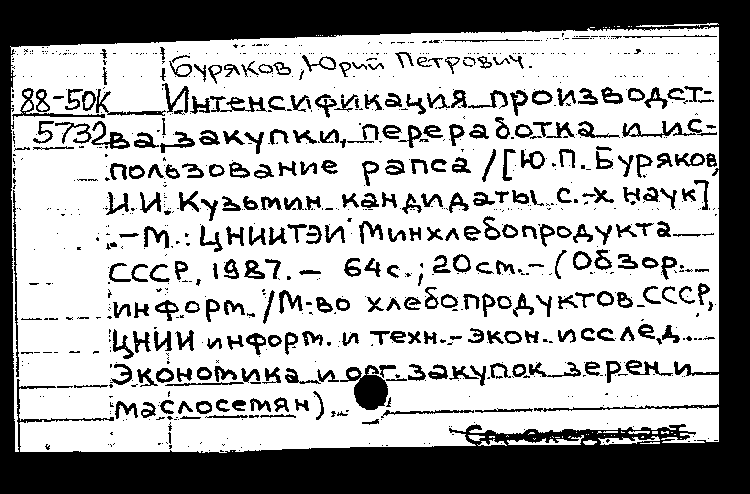 Буряков, Юрий Петрович.
88-50К Интенсификация производст-
5732 ва, закупки, переработка и ис-
пользование рапса / [Ю.П. Буряков,
И.И. Кузьмин кандидаты с.-х. наук]
.- М.: ЦНИИТЭИ Минхлебопродукта
СССР, 1987. - 64с.; 20см. - (Обзор.
информ. / М-во хлебопродуктов СССР,
ЦНИИ информ. и техн.-экон. исслед.
Экономика и орг. закупок зерен и
маслосемян).
См. след. карт